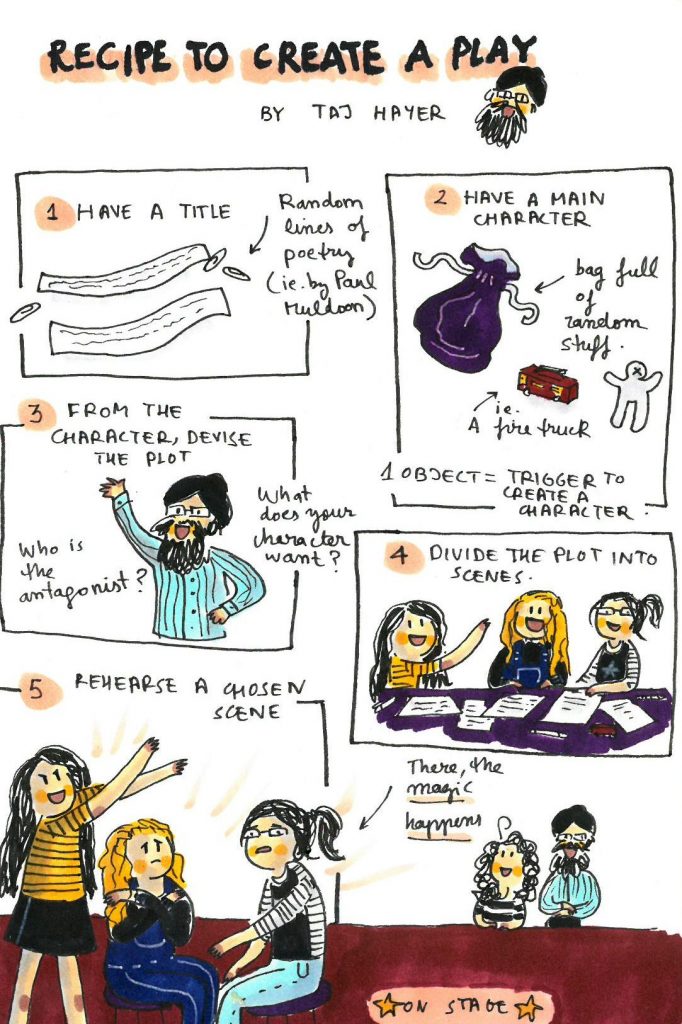 RECIPE TO CREATE A PLAY
BY TAJ HAYER
1 HAVE A TITLE
Random
lines of
poetry
(ie. by Paul
Muldoon)
2 HAVE A MAIN
CHARACTER
bag full
of
random
stuff.
ie.
A fire truck
1 OBJECT = TRIGGER TO
CREATE A
CHARACTER.
3 FROM THE
CHARACTER, DEVISE
THE PLOT
Who is
the
antagonist?
What
does your
character
want?
4 DIVIDE THE PLOT INTO
SCENES.
5 REHEARSE A CHOSEN
SCENE
There, the
magic
happens
ON STAGE